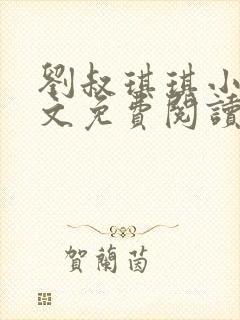 劉叔琪琪小
文免費閱讀
賀蘭茵